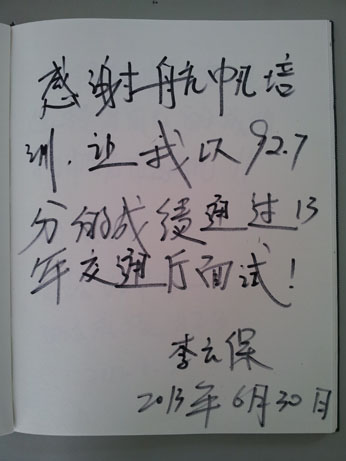 感谢航帆培
训，让我以92.7
分的成绩通过13
年交通厅面试！
李云保
2013年6月30日